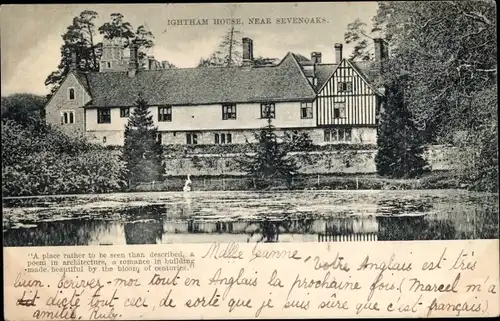 IGHTHAM HOUSE, NEAR SEVENOAKS.
"A place rather to be seen than described, a
poem in architecture, a romance in building
made beautiful by the bloom of centuries."
Votre Anglais est très
bien. Écrivez-moi tout en Anglais la prochaine fois (Marcel m'a
dit tout ceci, de sorte que je suis sûre que c'est français)
amitié, Ruby.